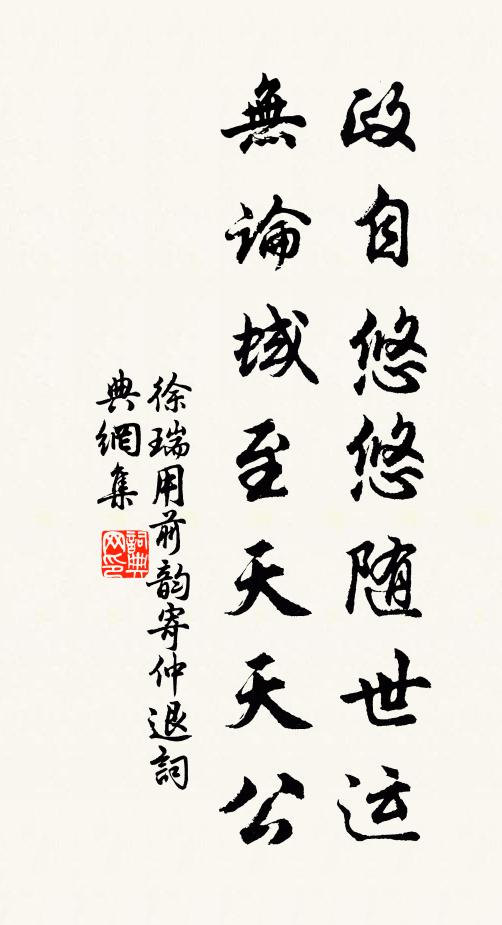 政自悠悠随世运
無论域至天天公
徐瑞用前韵寄仲退詞
典網集
詞典
网印